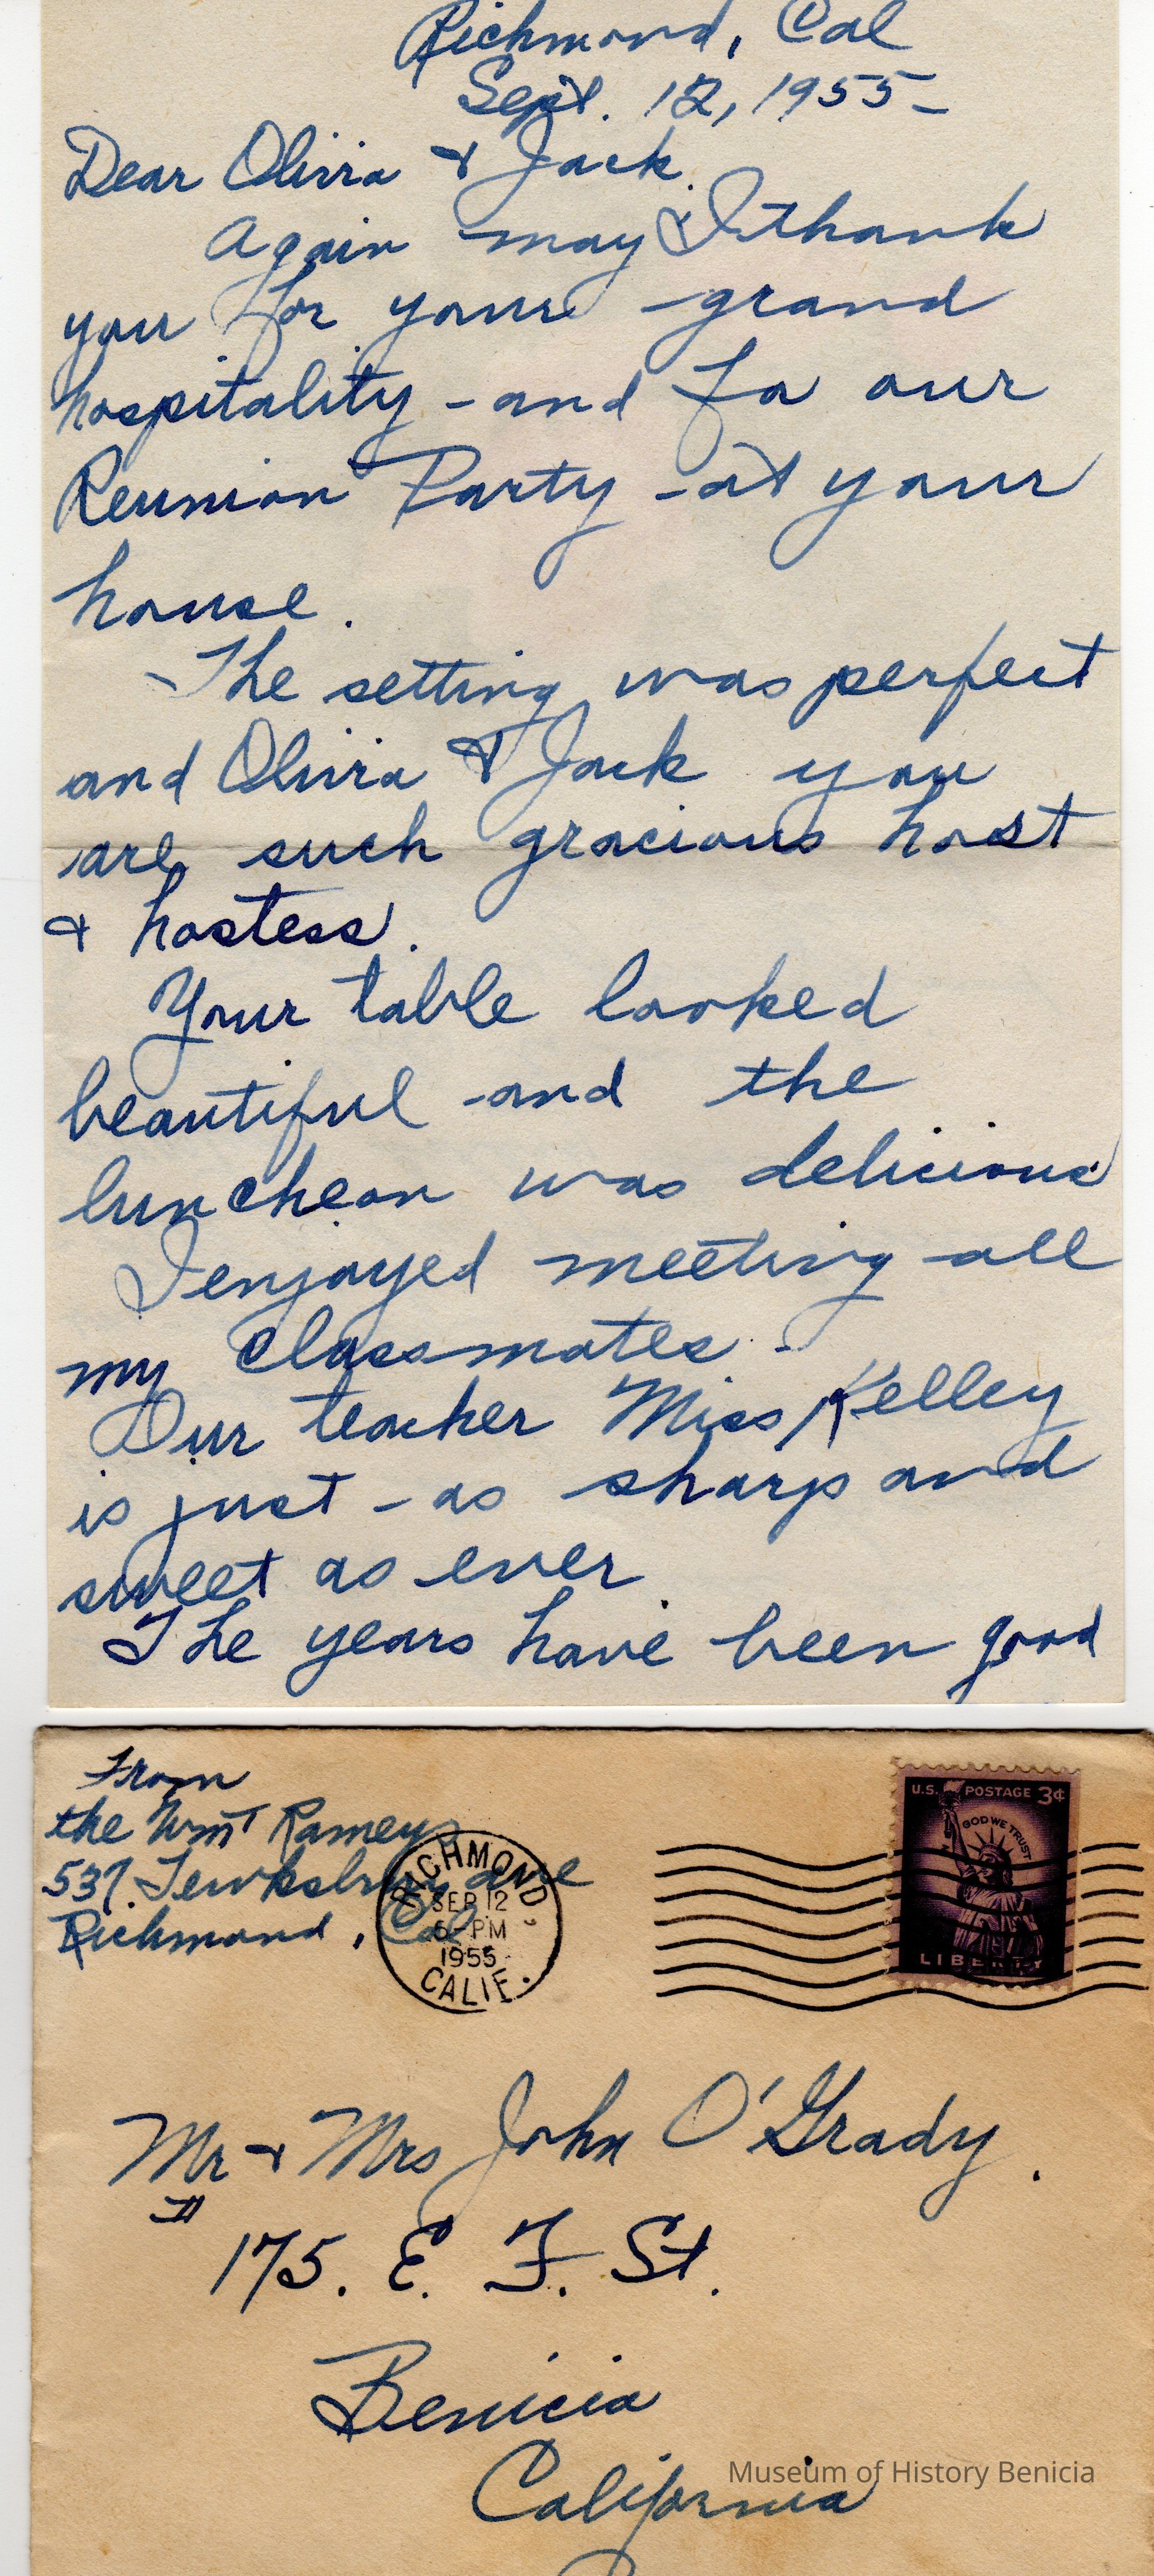 Richmond, Cal
Sept. 12, 1955-
Dear Olivia & Jack.
Again may I thank
you for your grand
hospitality - and fo our
Reunion Party - at your
house.
The setting was perfect
and Olivia & Jack you
are such gracious host
& hostess.
Your table looked
beautiful and the
luncheon was delicious
I enjoyed meeting all
my classmates.
Our teacher Miss Kelley
is just as sharp and
sweet as ever
The years have been good
From
the Wm Rameys
537 Tewksbury Ave
Richmond, Cal
RICHMOND,
SEP 12
6 - PM
1955
CALIF.
U.S. POSTAGE 3¢
GOD WE TRUST
LIBERTY
Mr & Mrs John O'Grady.
175. E. F. St.
Benicia
California
Museum of History Benicia